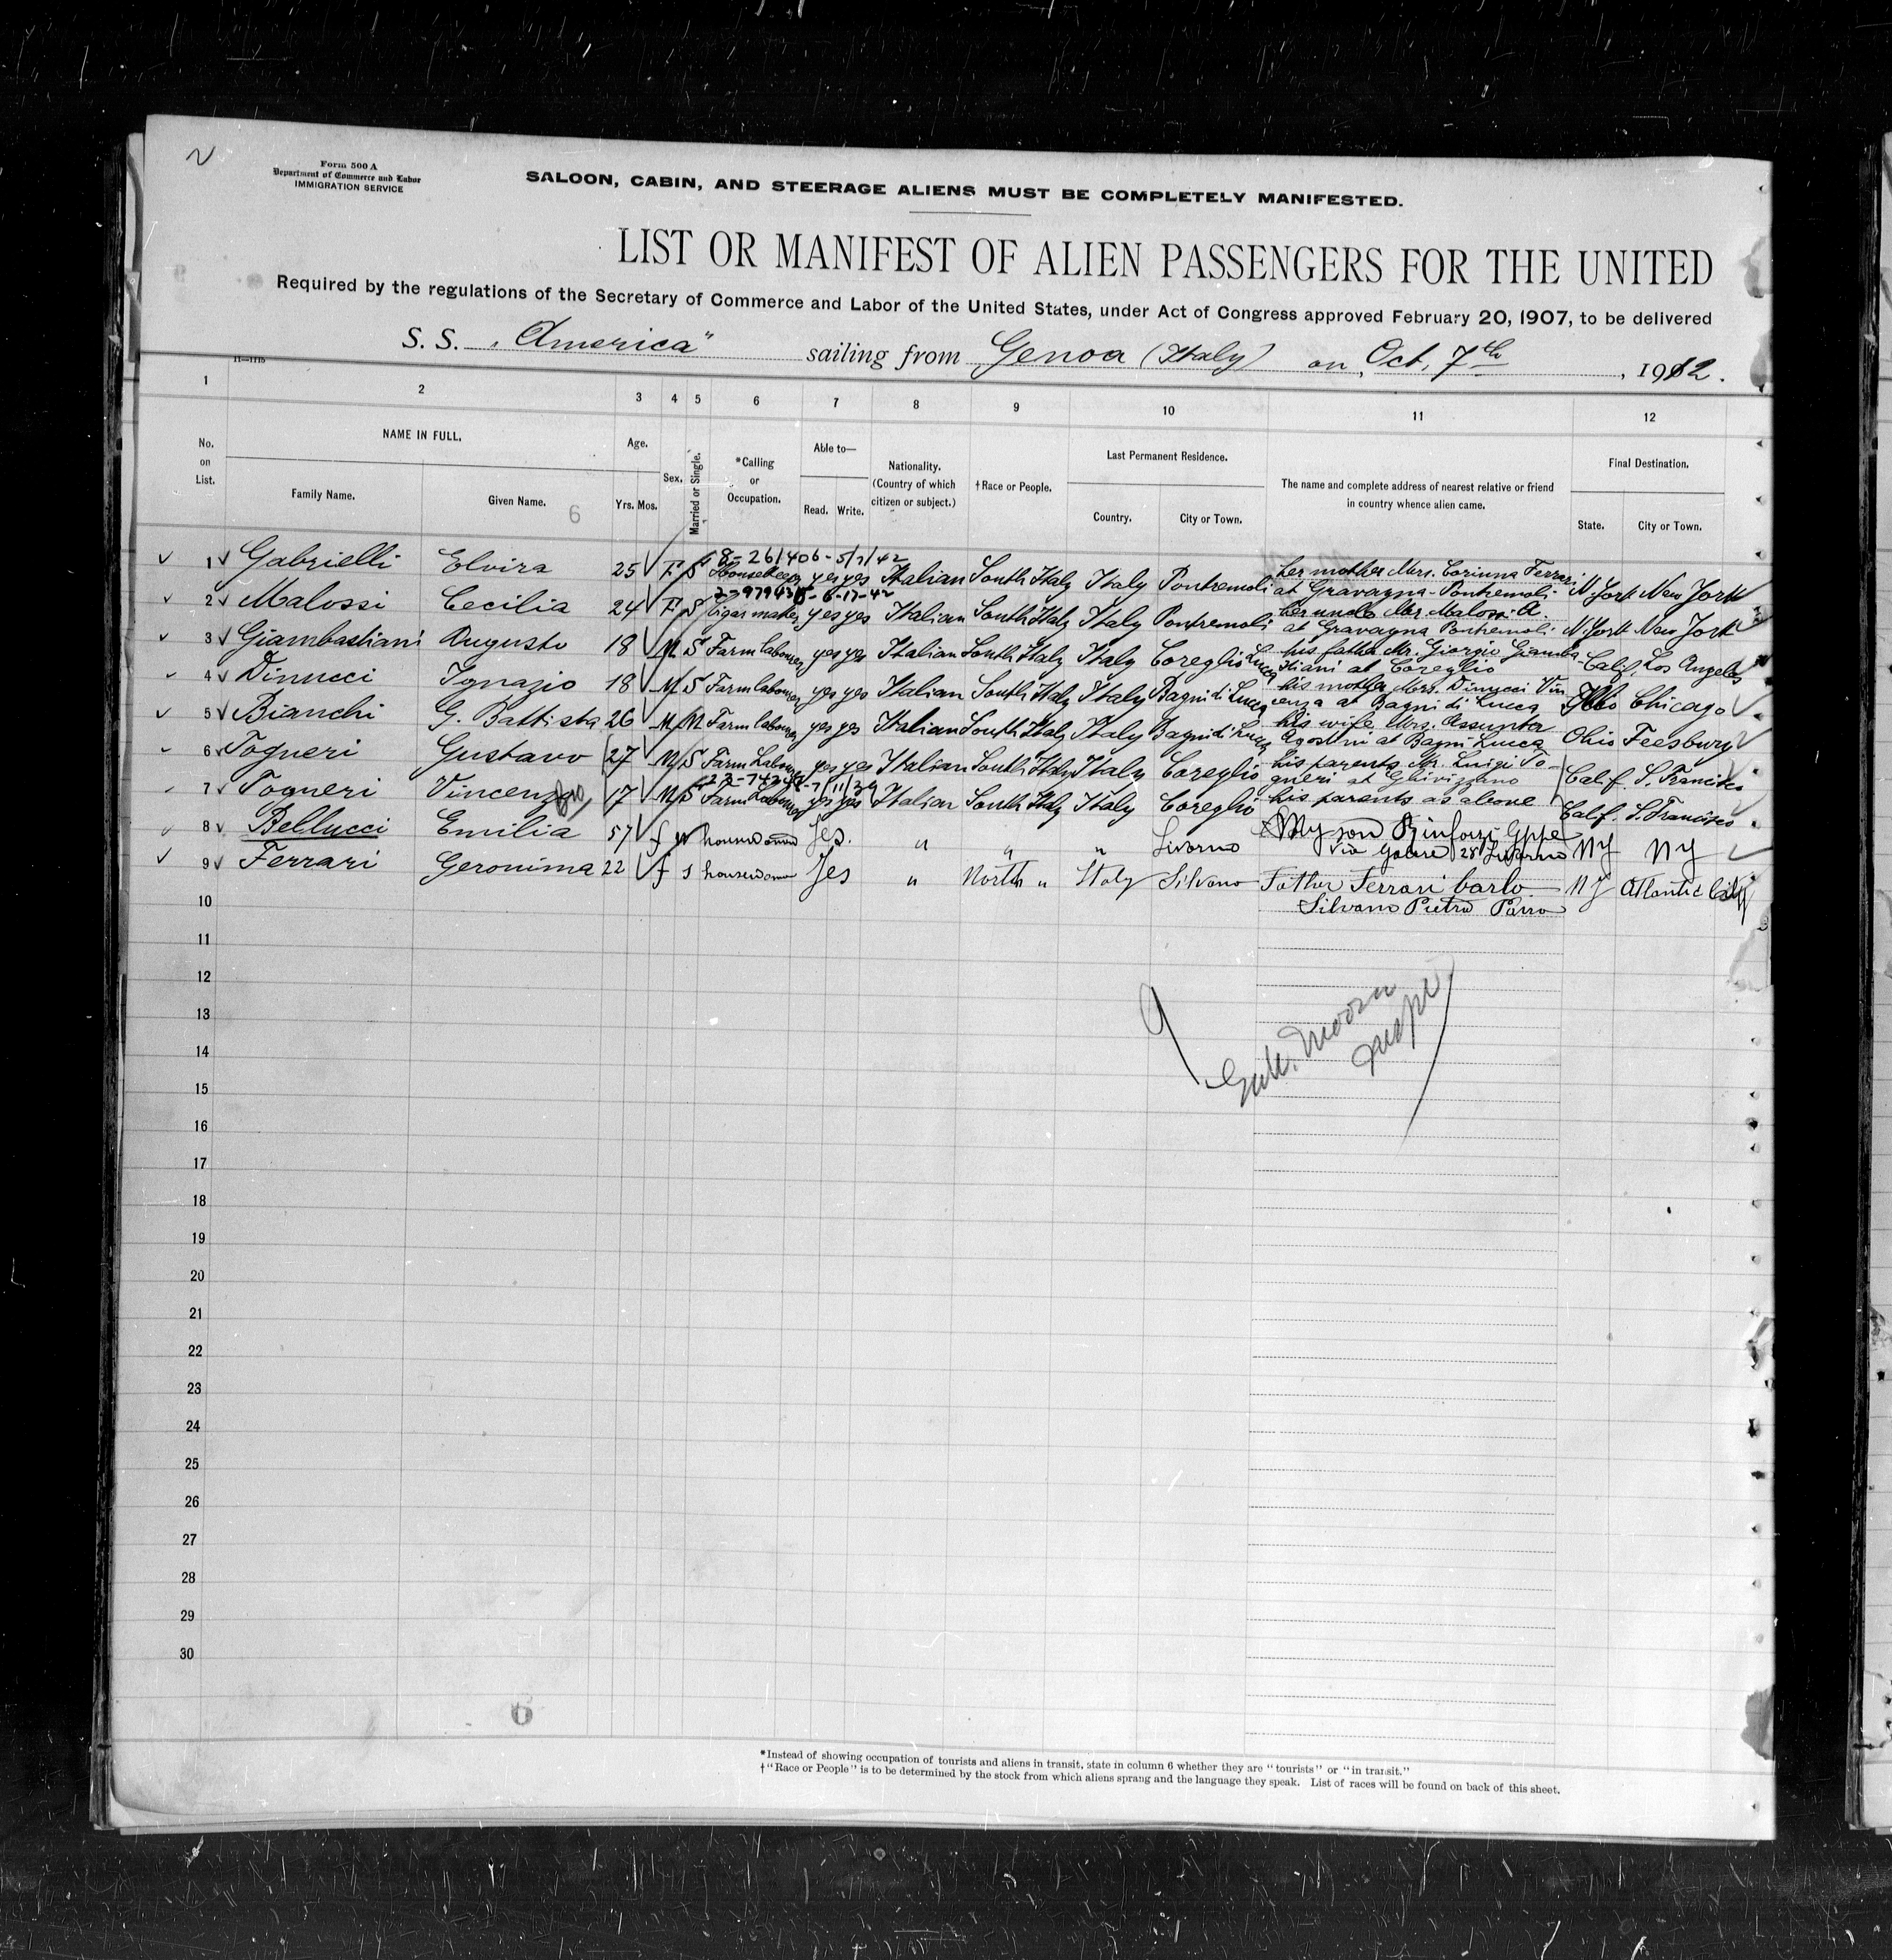 Form 500 A
Department of Commerce and Labor
IMMIGRATION SERVICE
SALOON, CABIN, AND STEERAGE ALIENS MUST BE COMPLETELY MANIFESTED.
LIST OR MANIFEST OF ALIEN PASSENGERS FOR THE UNITED
Required by the regulations of the Secretary of Commerce and Labor of the United States, under Act of Congress approved February 20, 1907, to be delivered
S. S. "America" sailing from Genoa (Italy) on Oct. 7th, 1912.
1 2 3 4 5 6 7 8 9 10 11 12
No. on List.
NAME IN FULL.
Family Name. Given Name.
6
Age.
Yrs. Mos.
Sex.
Married or Single.
*Calling or Occupation.
Able to—
Read. Write.
Nationality. (Country of which citizen or subject.)
†Race or People.
Last Permanent Residence.
Country. City or Town.
The name and complete address of nearest relative or friend in country whence alien came.
Final Destination.
State. City or Town.
8-261406-5/7/42
1 Gabrielli Elvira 25 F S Housekeeper yes yes Italian South Italy Italy Pontremoli her mother Mrs. Corinna Ferrari at Gravagna-Pontremoli N. York New York
2 Malossi Cecilia 24 F S Cigar maker yes yes Italian South Italy Italy Pontremoli her uncle Mr. Malossi A. at Gravagna Pontremoli N. York New York
3 Giambastiani Augusto 18 M S Farm labourer yes yes Italian South Italy Italy Coreglio Lucca his father Mr. Giorgio Giambastiani at Coreglio Calif. Los Angeles
4 Dinucci Ignazio 18 M S Farm labourer yes yes Italian South Italy Italy Bagni di Lucca his mother Mrs. Dinucci Vincenza at Bagni di Lucca Chicago
5 Bianchi G. Battista 26 M M Farm labourer yes yes Italian South Italy Italy Bagni di Lucca his wife Mrs. Assunta Agostini at Bagni-Lucca Ohio Feesburg
6 Togneri Gustavo 27 M S Farm Labourer yes yes Italian South Italy Italy Coreglio his parents Mr. Luigi Togneri at Ghivizzano Calif. S. Francisco
7 Togneri Vincenzo 17 M S Farm Labourer yes yes Italian South Italy Italy Coreglio his parents as above Calif. S. Francisco
8 Bellucci Emilia 57 f housewoman Yes. " " " Livorno My son Rinforzi Gppe NY NY
9 Ferrari Geronima 22 f s housewoman Yes " North " Italy Silvano Father Ferrari Carlo Silvano Pietra NJ Atlantic City
10
11
12
13
14
15
16
17
18
19
20
21
22
23
24
25
26
27
28
29
30
9
6
*Instead of showing occupation of tourists and aliens in transit, state in column 6 whether they are "tourists" or "in transit."
†"Race or People" is to be determined by the stock from which aliens sprang and the language they speak. List of races will be found on back of this sheet.